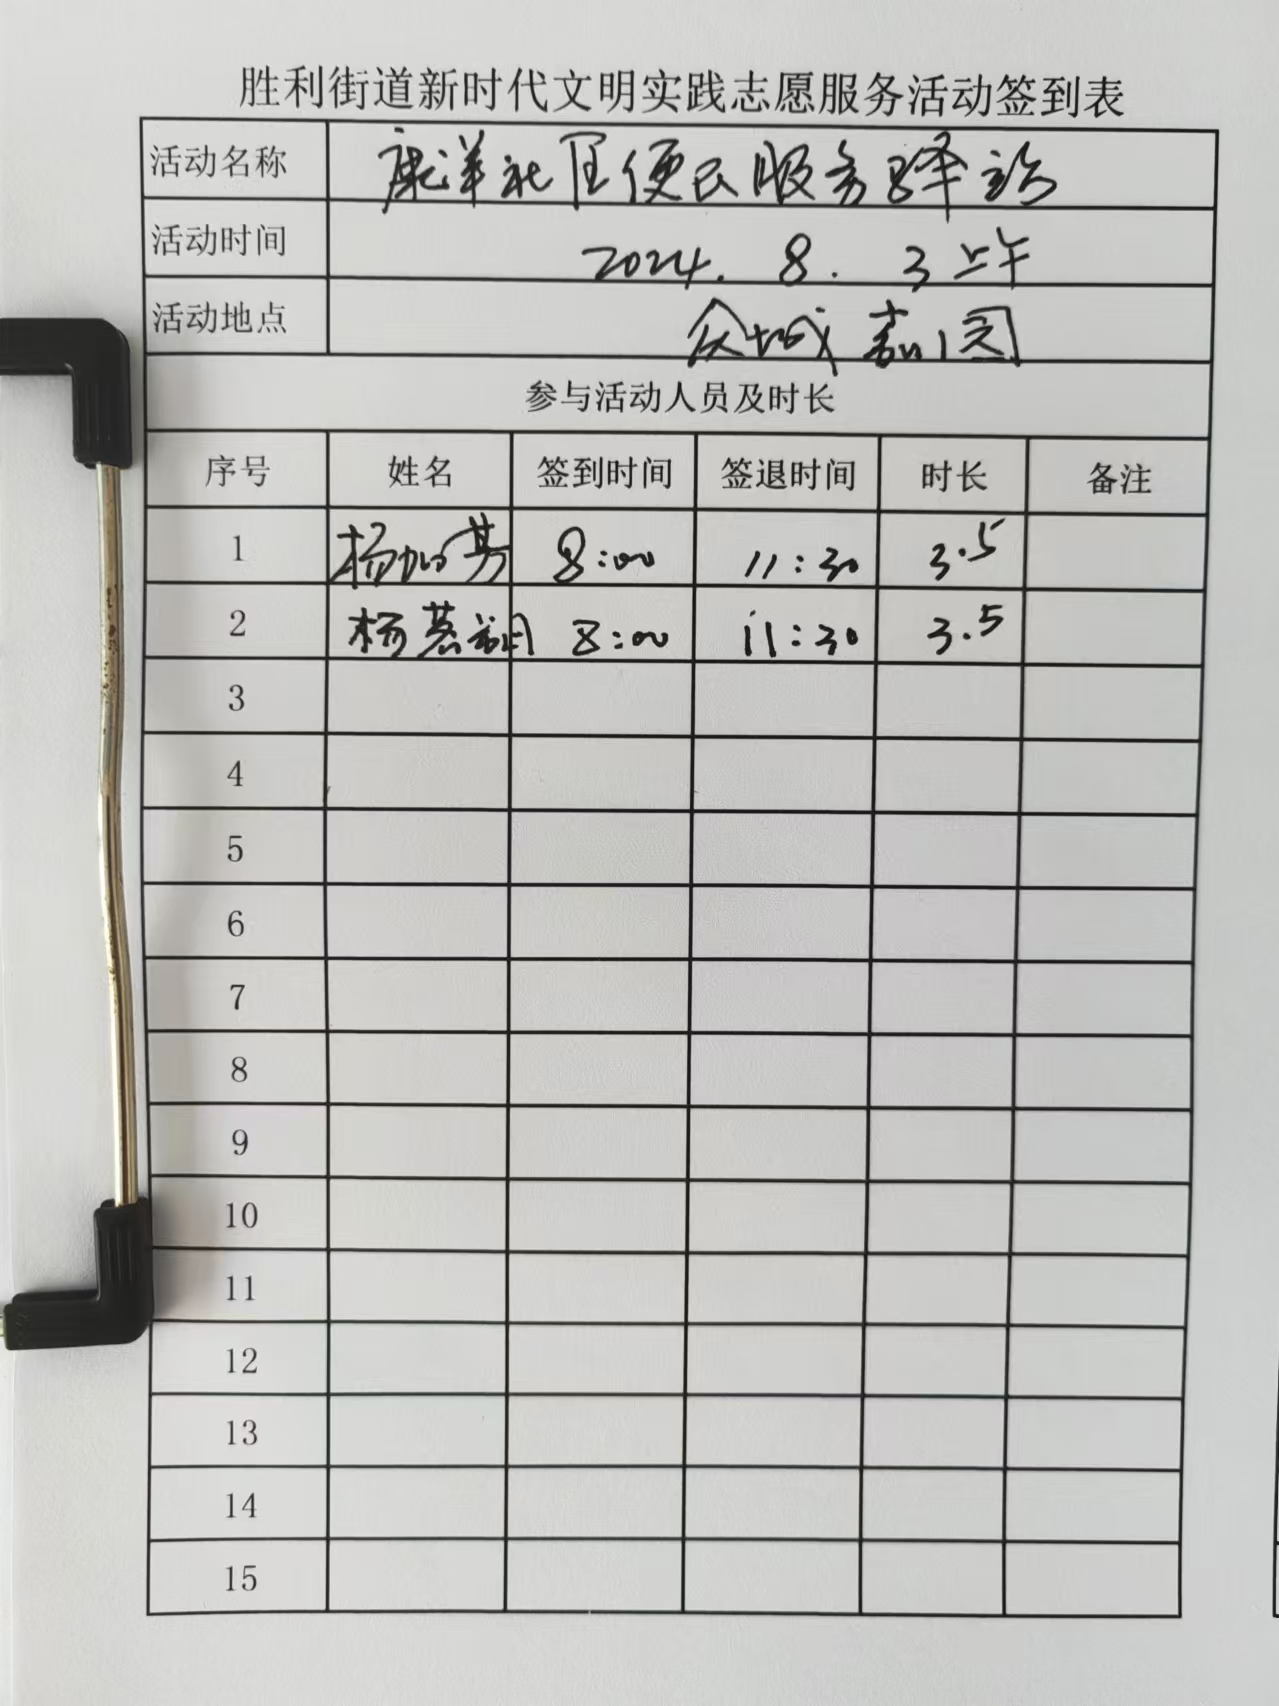 胜利街道新时代文明实践志愿服务活动签到表
活动名称 庞洋社区便民服务驿站
活动时间 2024. 8. 3上午
活动地点 众城嘉园
参与活动人员及时长
序号 姓名 签到时间 签退时间 时长 备注
1 杨 8:00 11:30 3.5
2 杨 8:00 11:30 3.5
3
4
5
6
7
8
9
10
11
12
13
14
15